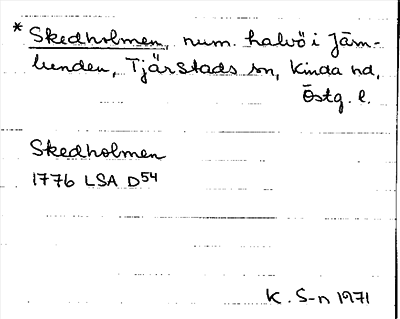 * Skedholmen, num. halvö i Järn-
lunden, Tjärstads sn, Kinda hd,
Östg. l.
Skedholmen
1776 LSA D54
K. S-n 1971